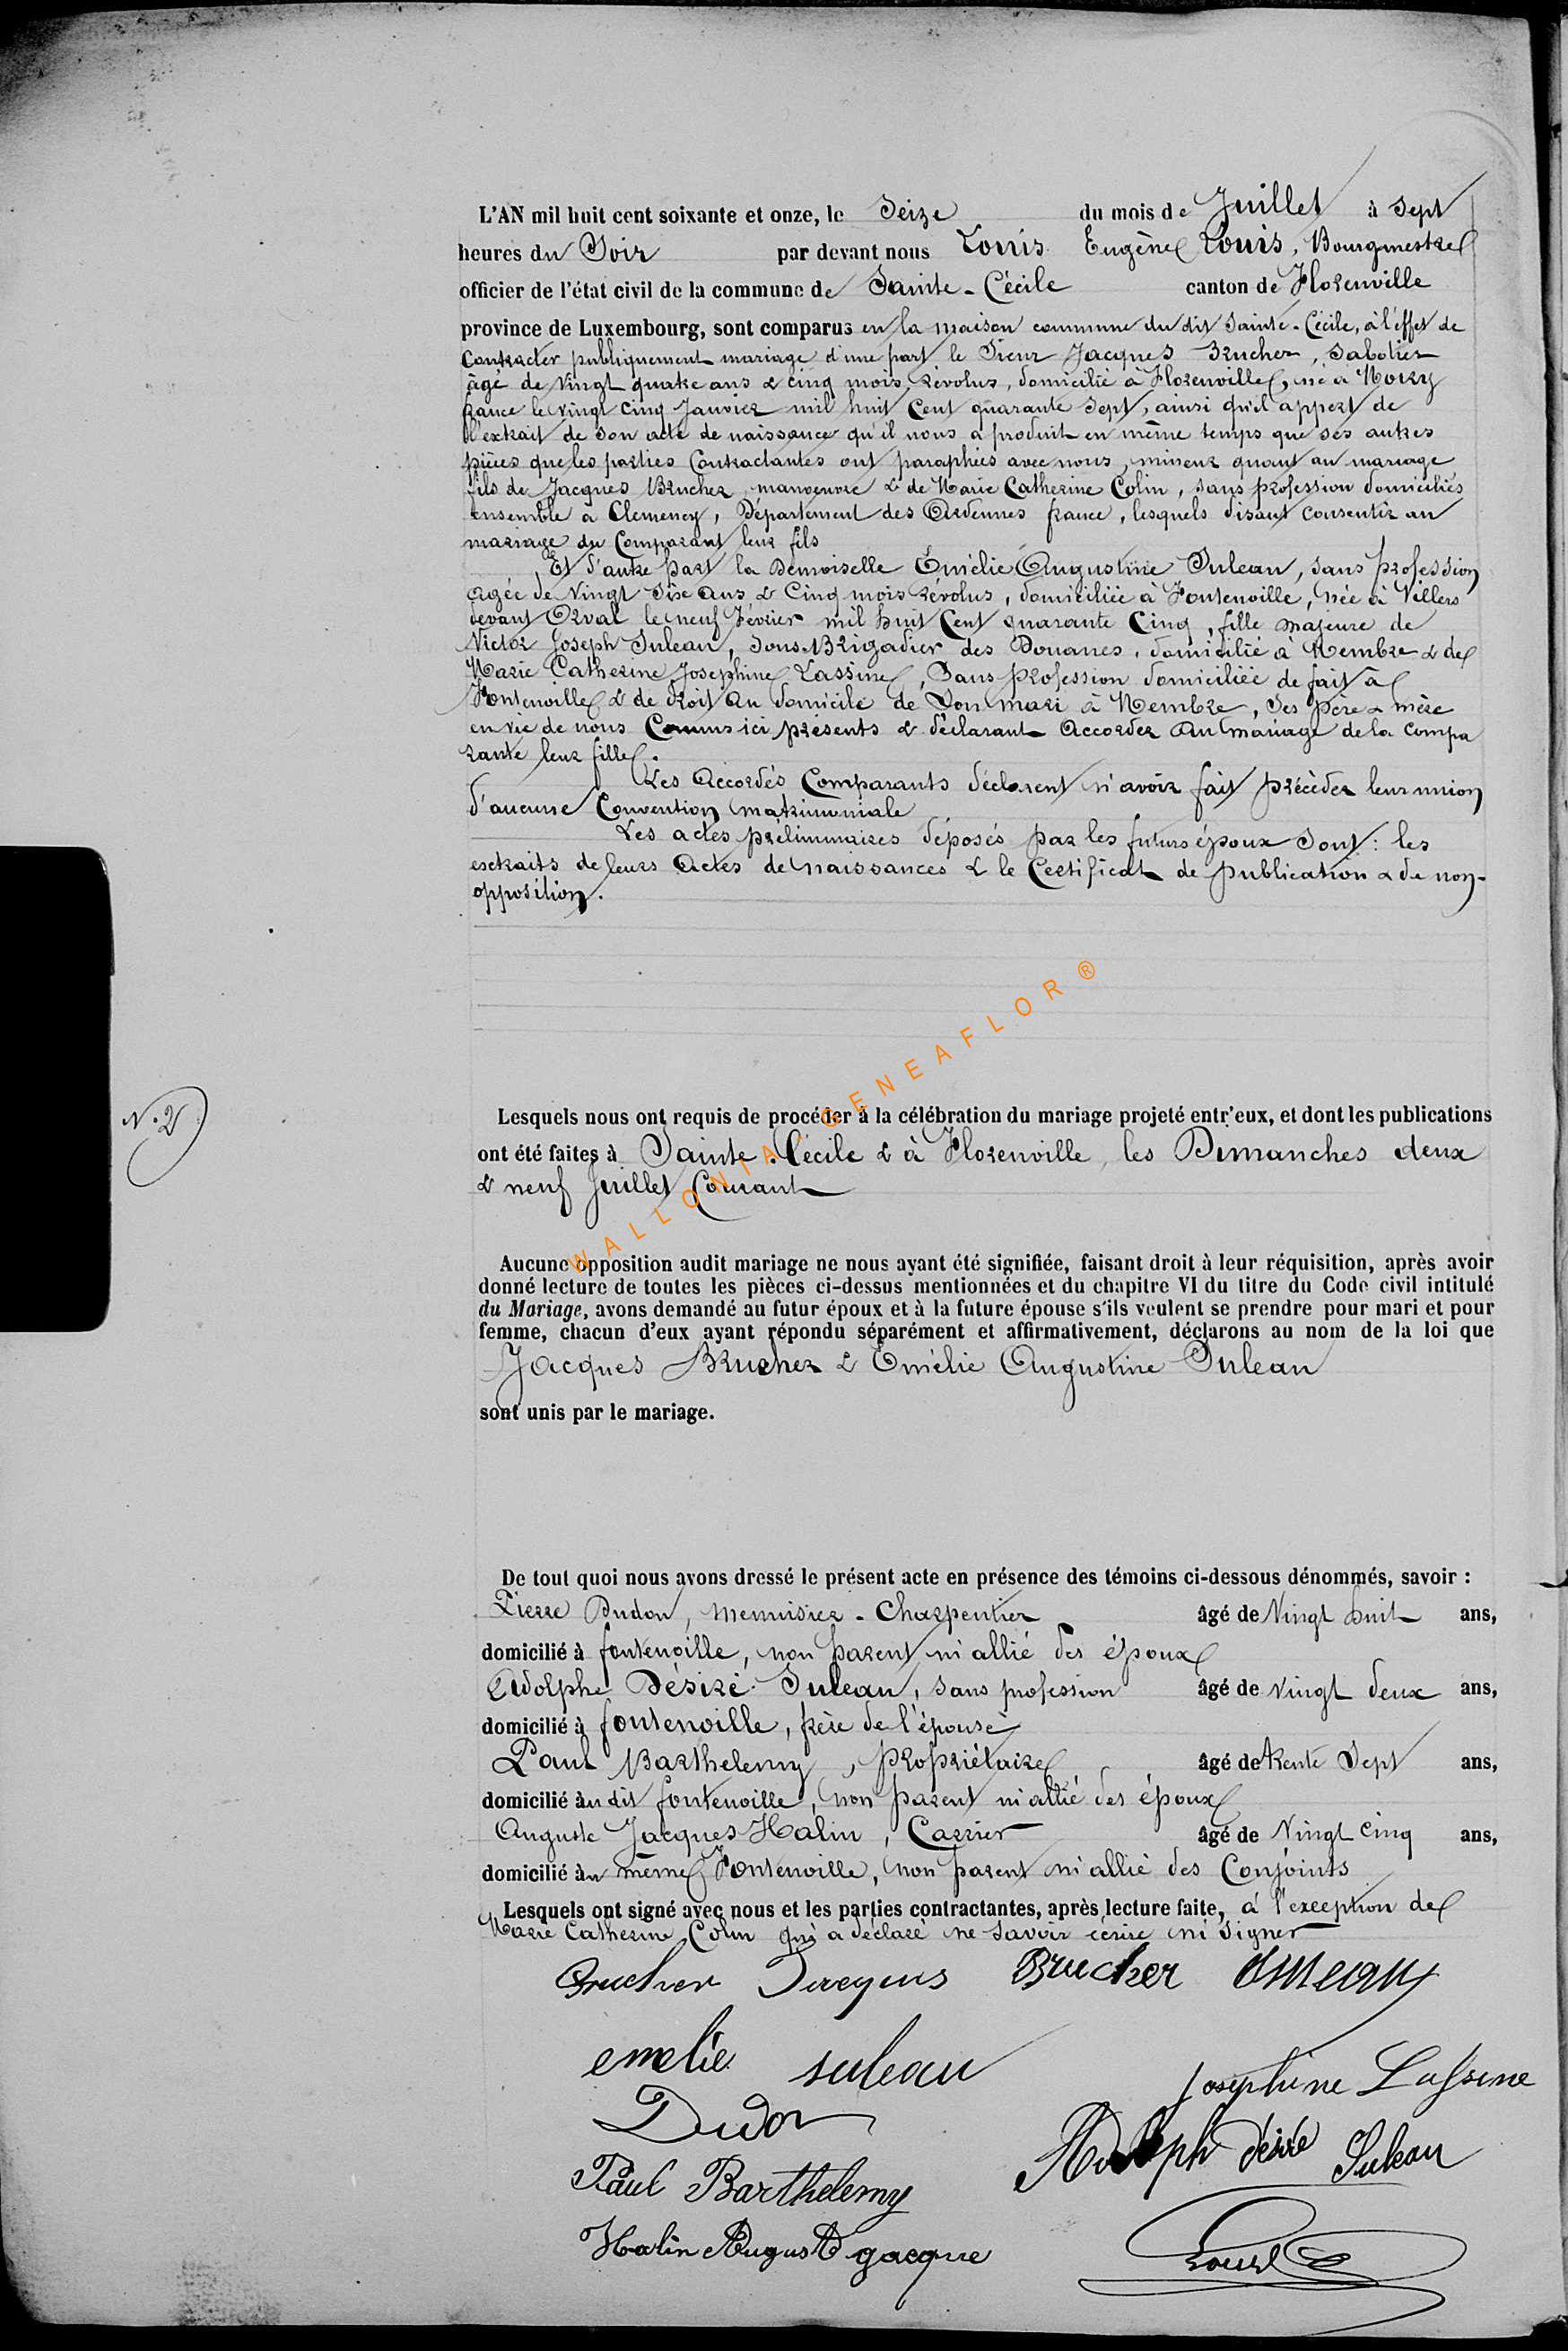 L'AN mil huit cent soixante et onze, le Seize du mois de Juillet à Sept
heures du Soir par devant nous Louis Eugène Louis, Bourgmestre
officier de l'état civil de la commune de Sainte-Cécile canton de Florenville
province de Luxembourg, sont comparus en la maison commune du dit Sainte-Cécile, à l'effet de
Contracter publiquement mariage d'une part le Sieur Jacques Brucher, Sabotier
âgé de Vingt quatre ans & cinq mois révolus, domicilié à Florenville, né à Moiry
france le vingt cinq Janvier mil huit Cent quarante Sept, ainsi qu'il appert de
l'extrait de son acte de naissance qu'il nous a produit en même temps que ses autres
pièces que les parties Contractantes ont paraphées avec nous, mineur quant au mariage
fils de Jacques Brucher manoeuvre & de Marie Catherine Colin, sans profession domiciliés
ensemble à Clemency, Département des Ardennes france, lesquels disant consentir au
mariage du Comparant leur fils
Et d'autre part la Demoiselle Emélie Augustine Suleau, sans profession
agée de Vingt Six ans & Cinq mois révolus, domiciliée à Fontenoille, née à Villers
devant Orval le neuf Février mil huit Cent quarante Cinq, fille majeure de
Victor Joseph Suleau, Sous-Brigadier des Douanes, domicilié à Membre & de
Marie Catherine Josephine Lassine, Sans profession domiciliée de fait à
Fontenoille & de droit au domicile de Son mari à Membre, Ses père & mère
en vie de nous Connus ici présents & déclarant Accorder au mariage de la Compa
rante leur fille.
Les Accordés Comparants déclarent n'avoir fait précéder leur union
d'aucune Convention matrimoniale
Les actes préliminaires déposés par les futurs époux Sont : les
extraits de leurs Actes de naissances & le Certificat de publication & de non-
opposition.
N.2
Lesquels nous ont requis de procéder à la célébration du mariage projeté entr'eux, et dont les publications
ont été faites à Sainte-Cécile & à Florenville, les Dimanches deux
& neuf Juillet Courant
WALLONIA - GENEAFLOR ®
Aucune opposition audit mariage ne nous ayant été signifiée, faisant droit à leur réquisition, après avoir
donné lecture de toutes les pièces ci-dessus mentionnées et du chapitre VI du titre du Code civil intitulé
du Mariage, avons demandé au futur époux et à la future épouse s'ils veulent se prendre pour mari et pour
femme, chacun d'eux ayant répondu séparément et affirmativement, déclarons au nom de la loi que
Jacques Brucher & Emélie Augustine Suleau
sont unis par le mariage.
De tout quoi nous avons dressé le présent acte en présence des témoins ci-dessous dénommés, savoir :
Pierre Dudon, menuisier-Charpentier âgé de Vingt huit ans,
domicilié à fontenoille, non parent ni allié des époux
Adolphe Désiré Suleau, sans profession âgé de vingt deux ans,
domicilié à fontenoille, frère de l'épouse
Paul Barthelemy, propriétaire âgé de trente Sept ans,
domicilié au dit fontenoille, non parent ni allié des époux
Auguste Jacques Halin, Carrier âgé de Vingt cinq ans,
domicilié au même Fontenoille, non parent ni allié des Conjoints
Lesquels ont signé avec nous et les parties contractantes, après lecture faite, à l'exception de
Marie Catherine Colin qui a déclaré ne savoir écrire ni signer
Brucher Brucher
emelie suleau
Josephine Lassine
Dudon
Adolph désiré Suleau
Paul Barthelemy
Halin August gacque
Louis